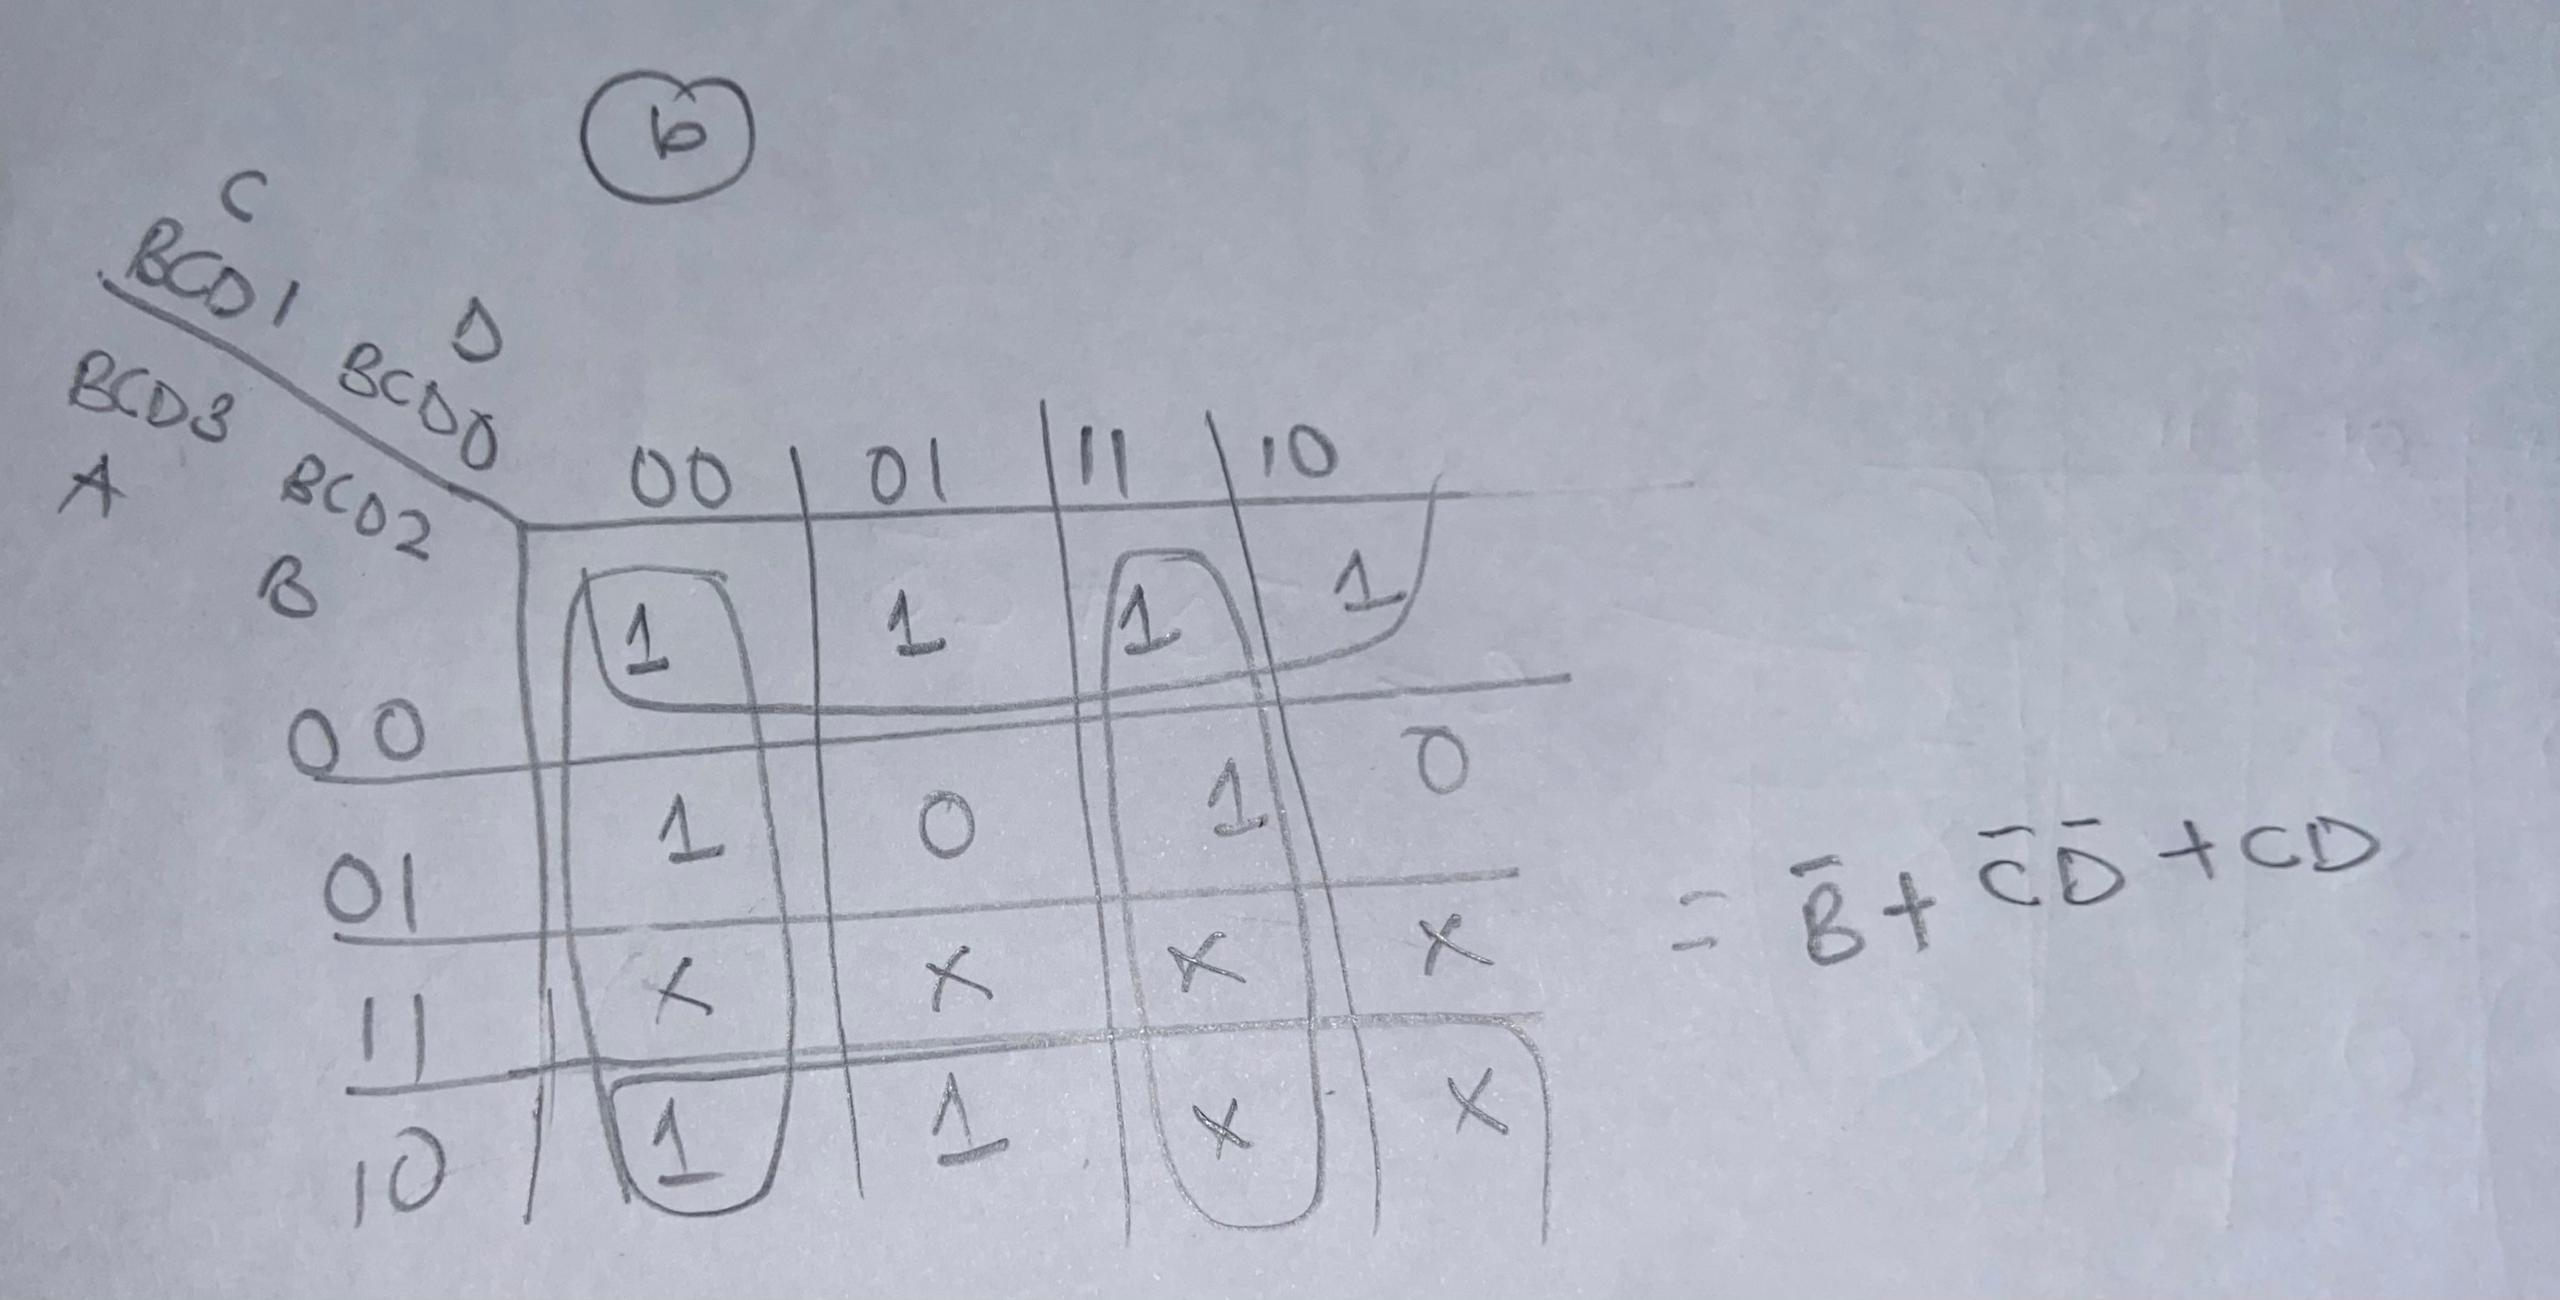 b
C
BCD1
D
BCD0
BCD3
A
BCD2
B
00 01 11 10
00 1 1 1 1
01 1 0 1 0
11 x x x x
10 1 1 x x
= B̄ + C̄D̄ + CD